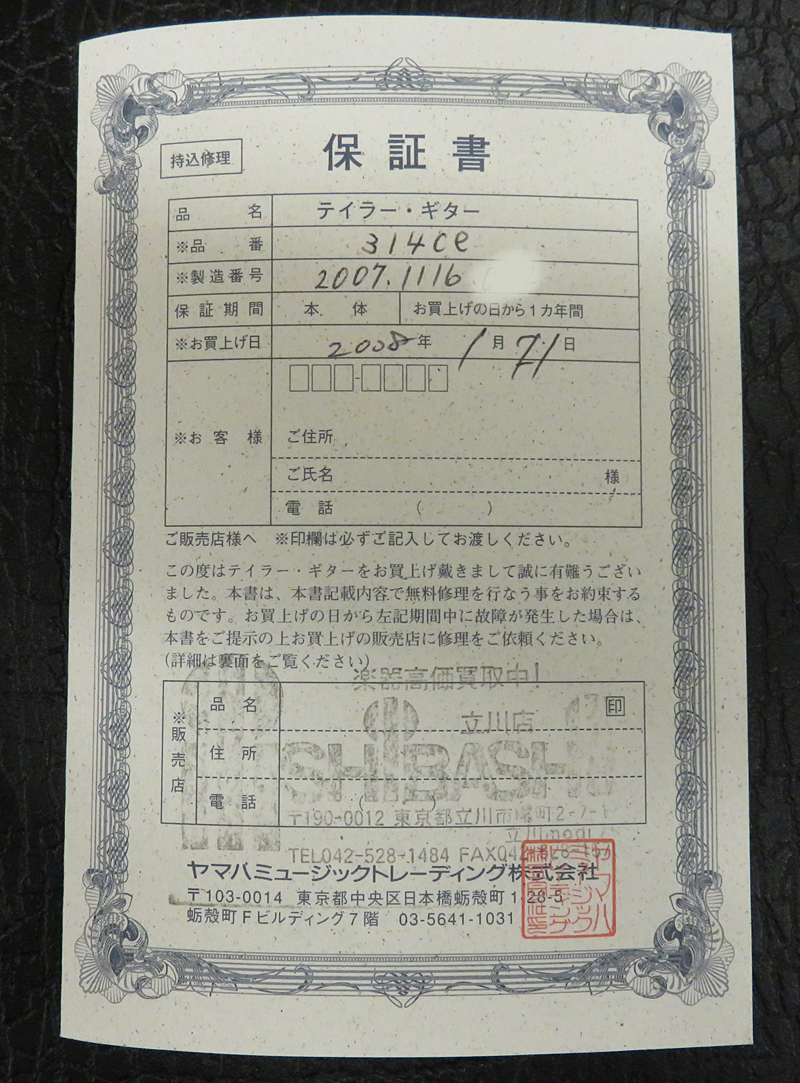 保証書
持込修理
品名 テイラー・ギター
※品番 314ce
※製造番号 2007.1116
保証期間 本体 お買上げの日から1カ年間
※お買上げ日 2008年 1月 71日
※お客様
ご住所
ご氏名 様
電話 ( )
ご販売店様へ ※印欄は必ずご記入してお渡しください。
この度はテイラー・ギターをお買上げ戴きまして誠に有難うござい
ました。本書は、本書記載内容で無料修理を行なう事をお約束する
ものです。お買上げの日から左記期間中に故障が発生した場合は、
本書をご提示の上お買上げの販売店に修理をご依頼ください。
(詳細は裏面をご覧ください)
楽器高価買取中!
※販売店
品名 印
立川店
住所
SHIBASHI
電話 ( )
〒190-0012 東京都立川市曙町2-7-1
立川
TEL042-528-1484 FAX042
ヤマハミュージックトレーディング株式会社
〒103-0014 東京都中央区日本橋蛎殻町1-28-5
蛎殻町Fビルディング7階 03-5641-1031